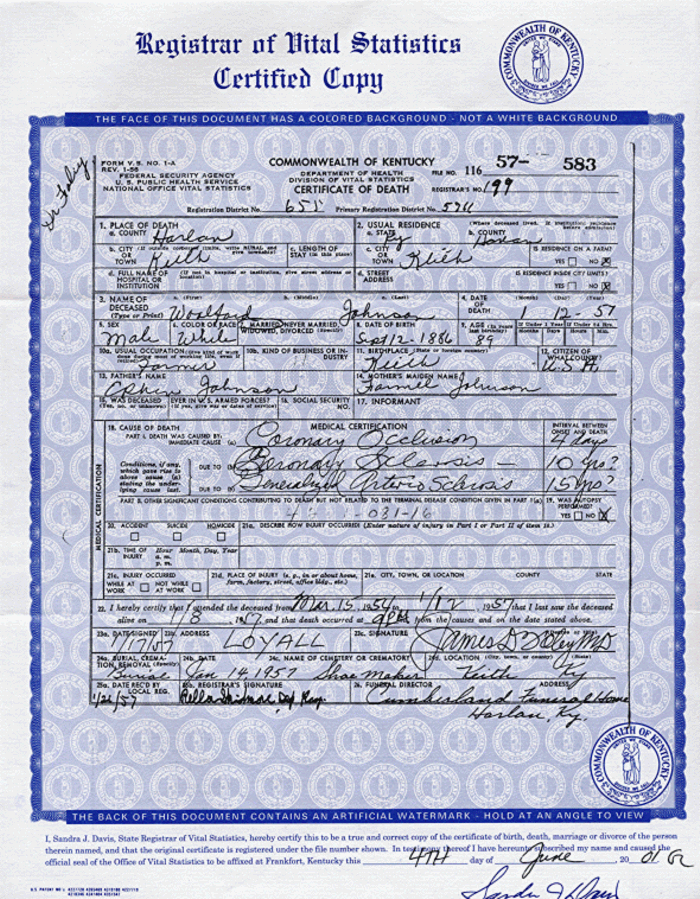 Registrar of Vital Statistics
Certified Copy
COMMONWEALTH OF KENTUCKY
THE FACE OF THIS DOCUMENT HAS A COLORED BACKGROUND - NOT A WHITE BACKGROUND
Dr Foley
FORM V.S. NO. 1-A
REV. 1-56
FEDERAL SECURITY AGENCY
U. S. PUBLIC HEALTH SERVICE
NATIONAL OFFICE VITAL STATISTICS
COMMONWEALTH OF KENTUCKY
DEPARTMENT OF HEALTH
DIVISION OF VITAL STATISTICS
CERTIFICATE OF DEATH
FILE NO. 116 57- 583
REGISTRAR'S NO. 199
Registration District No. 655 Primary Registration District No.
1. PLACE OF DEATH
a. COUNTY Harlan
2. USUAL RESIDENCE (Where deceased lived. If institution: residence before admission)
a. STATE Ky b. COUNTY Harlan
b. CITY OR TOWN (If outside corporate limits, write RURAL and give township) Keith
c. LENGTH OF STAY (in this place)
c. CITY OR TOWN Keith
IS RESIDENCE ON A FARM?
YES NO X
d. FULL NAME OF HOSPITAL OR INSTITUTION (If not in hospital or institution, give street address or location)
d. STREET ADDRESS
IS RESIDENCE INSIDE CITY LIMITS?
YES NO X
3. NAME OF DECEASED (Type or Print) a. (First) b. (Middle) c. (Last)
Woolford Johnson
4. DATE OF DEATH (Month) (Day) (Year)
1 12 - 57
5. SEX Male
6. COLOR OR RACE White
7. MARRIED, NEVER MARRIED, WIDOWED, DIVORCED (Specify)
8. DATE OF BIRTH Sept 12 - 1886
9. AGE (In years last birthday) 89
If Under 1 Year Months Days
If Under 24 Hrs. Hours Min.
10a. USUAL OCCUPATION (Give kind of work done during most of working life, even if retired) Farmer
10b. KIND OF BUSINESS OR INDUSTRY
11. BIRTHPLACE (State or foreign country) Keith
12. CITIZEN OF WHAT COUNTRY? U.S.A.
13. FATHER'S NAME Johnson
14. MOTHER'S MAIDEN NAME Johnson
15. WAS DECEASED EVER IN U.S. ARMED FORCES? (Yes, no, or unknown) (If yes, give war or dates of service)
16. SOCIAL SECURITY NO.
17. INFORMANT
MEDICAL CERTIFICATION
18. CAUSE OF DEATH
MEDICAL CERTIFICATION
INTERVAL BETWEEN ONSET AND DEATH
PART I. DEATH WAS CAUSED BY:
IMMEDIATE CAUSE (a) Coronary Occlusion 4 days
Conditions, if any, which gave rise to above cause (a) stating the underlying cause last.
DUE TO (b) Coronary Sclerosis - 10 yrs?
DUE TO (c) Generalized Arterio Sclerosis 15 yrs?
PART II. OTHER SIGNIFICANT CONDITIONS CONTRIBUTING TO DEATH BUT NOT RELATED TO THE TERMINAL DISEASE CONDITION GIVEN IN PART I(a)
031-16
19. WAS AUTOPSY PERFORMED?
YES NO X
20. ACCIDENT SUICIDE HOMICIDE
21a. DESCRIBE HOW INJURY OCCURRED (Enter nature of injury in Part I or Part II of item 18.)
21b. TIME OF INJURY Hour Month, Day, Year
a. m.
p. m.
21c. INJURY OCCURRED
WHILE AT WORK NOT WHILE AT WORK
21d. PLACE OF INJURY (e. g., in or about home, farm, factory, street, office bldg., etc.)
21e. CITY, TOWN, OR LOCATION COUNTY STATE
22. I hereby certify that I attended the deceased from Mar. 15, 1954 to 1/12, 1957 that I last saw the deceased
alive on 1/8, 1957 and that death occurred at from the causes and on the date stated above.
23a. DATE SIGNED
23b. ADDRESS LOYALL
23c. SIGNATURE James D Foley MD
24a. BURIAL, CREMATION, REMOVAL (Specify) Burial
24b. DATE Jan 14, 1957
24c. NAME OF CEMETERY OR CREMATORY Shoe maker
24d. LOCATION (City, town, or county) (State) Keith Ky
25a. DATE REC'D BY LOCAL REG. 1/26/57
25b. REGISTRAR'S SIGNATURE Della Skidmore Dep Reg.
26. FUNERAL DIRECTOR ADDRESS
Cumberland Funeral Home
Harlan, Ky.
COMMONWEALTH OF KENTUCKY
THE BACK OF THIS DOCUMENT CONTAINS AN ARTIFICIAL WATERMARK - HOLD AT AN ANGLE TO VIEW
I, Sandra J. Davis, State Registrar of Vital Statistics, hereby certify this to be a true and correct copy of the certificate of birth, death, marriage or divorce of the person
therein named, and that the original certificate is registered under the file number shown. In testimony thereof I have hereunto subscribed my name and caused the
official seal of the Office of Vital Statistics to be affixed at Frankfort, Kentucky this 4TH day of June 20 01
Sandra J Davis